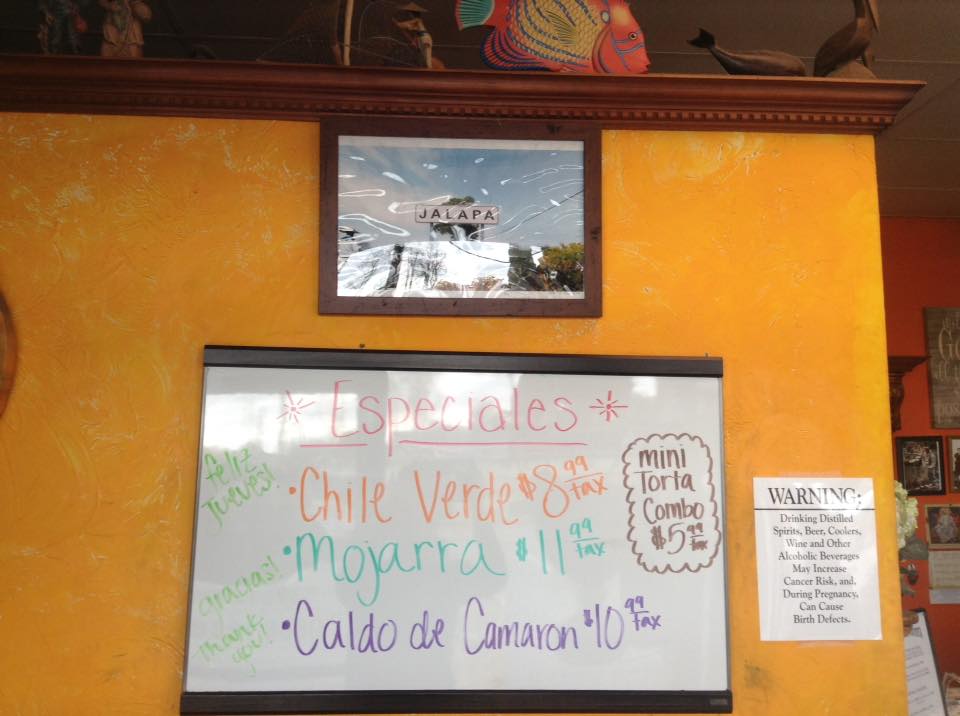 JALAPA
Especiales
feliz
jueves!
• Chile Verde $8 99/tax
• Mojarra $11 99/tax
• Caldo de Camaron $10 99/tax
gracias!
thank
you!
mini
Torta
Combo
$5 99/tax
WARNING:
Drinking Distilled
Spirits, Beer, Coolers,
Wine and Other
Alcoholic Beverages
May Increase
Cancer Risk, and,
During Pregnancy,
Can Cause
Birth Defects.